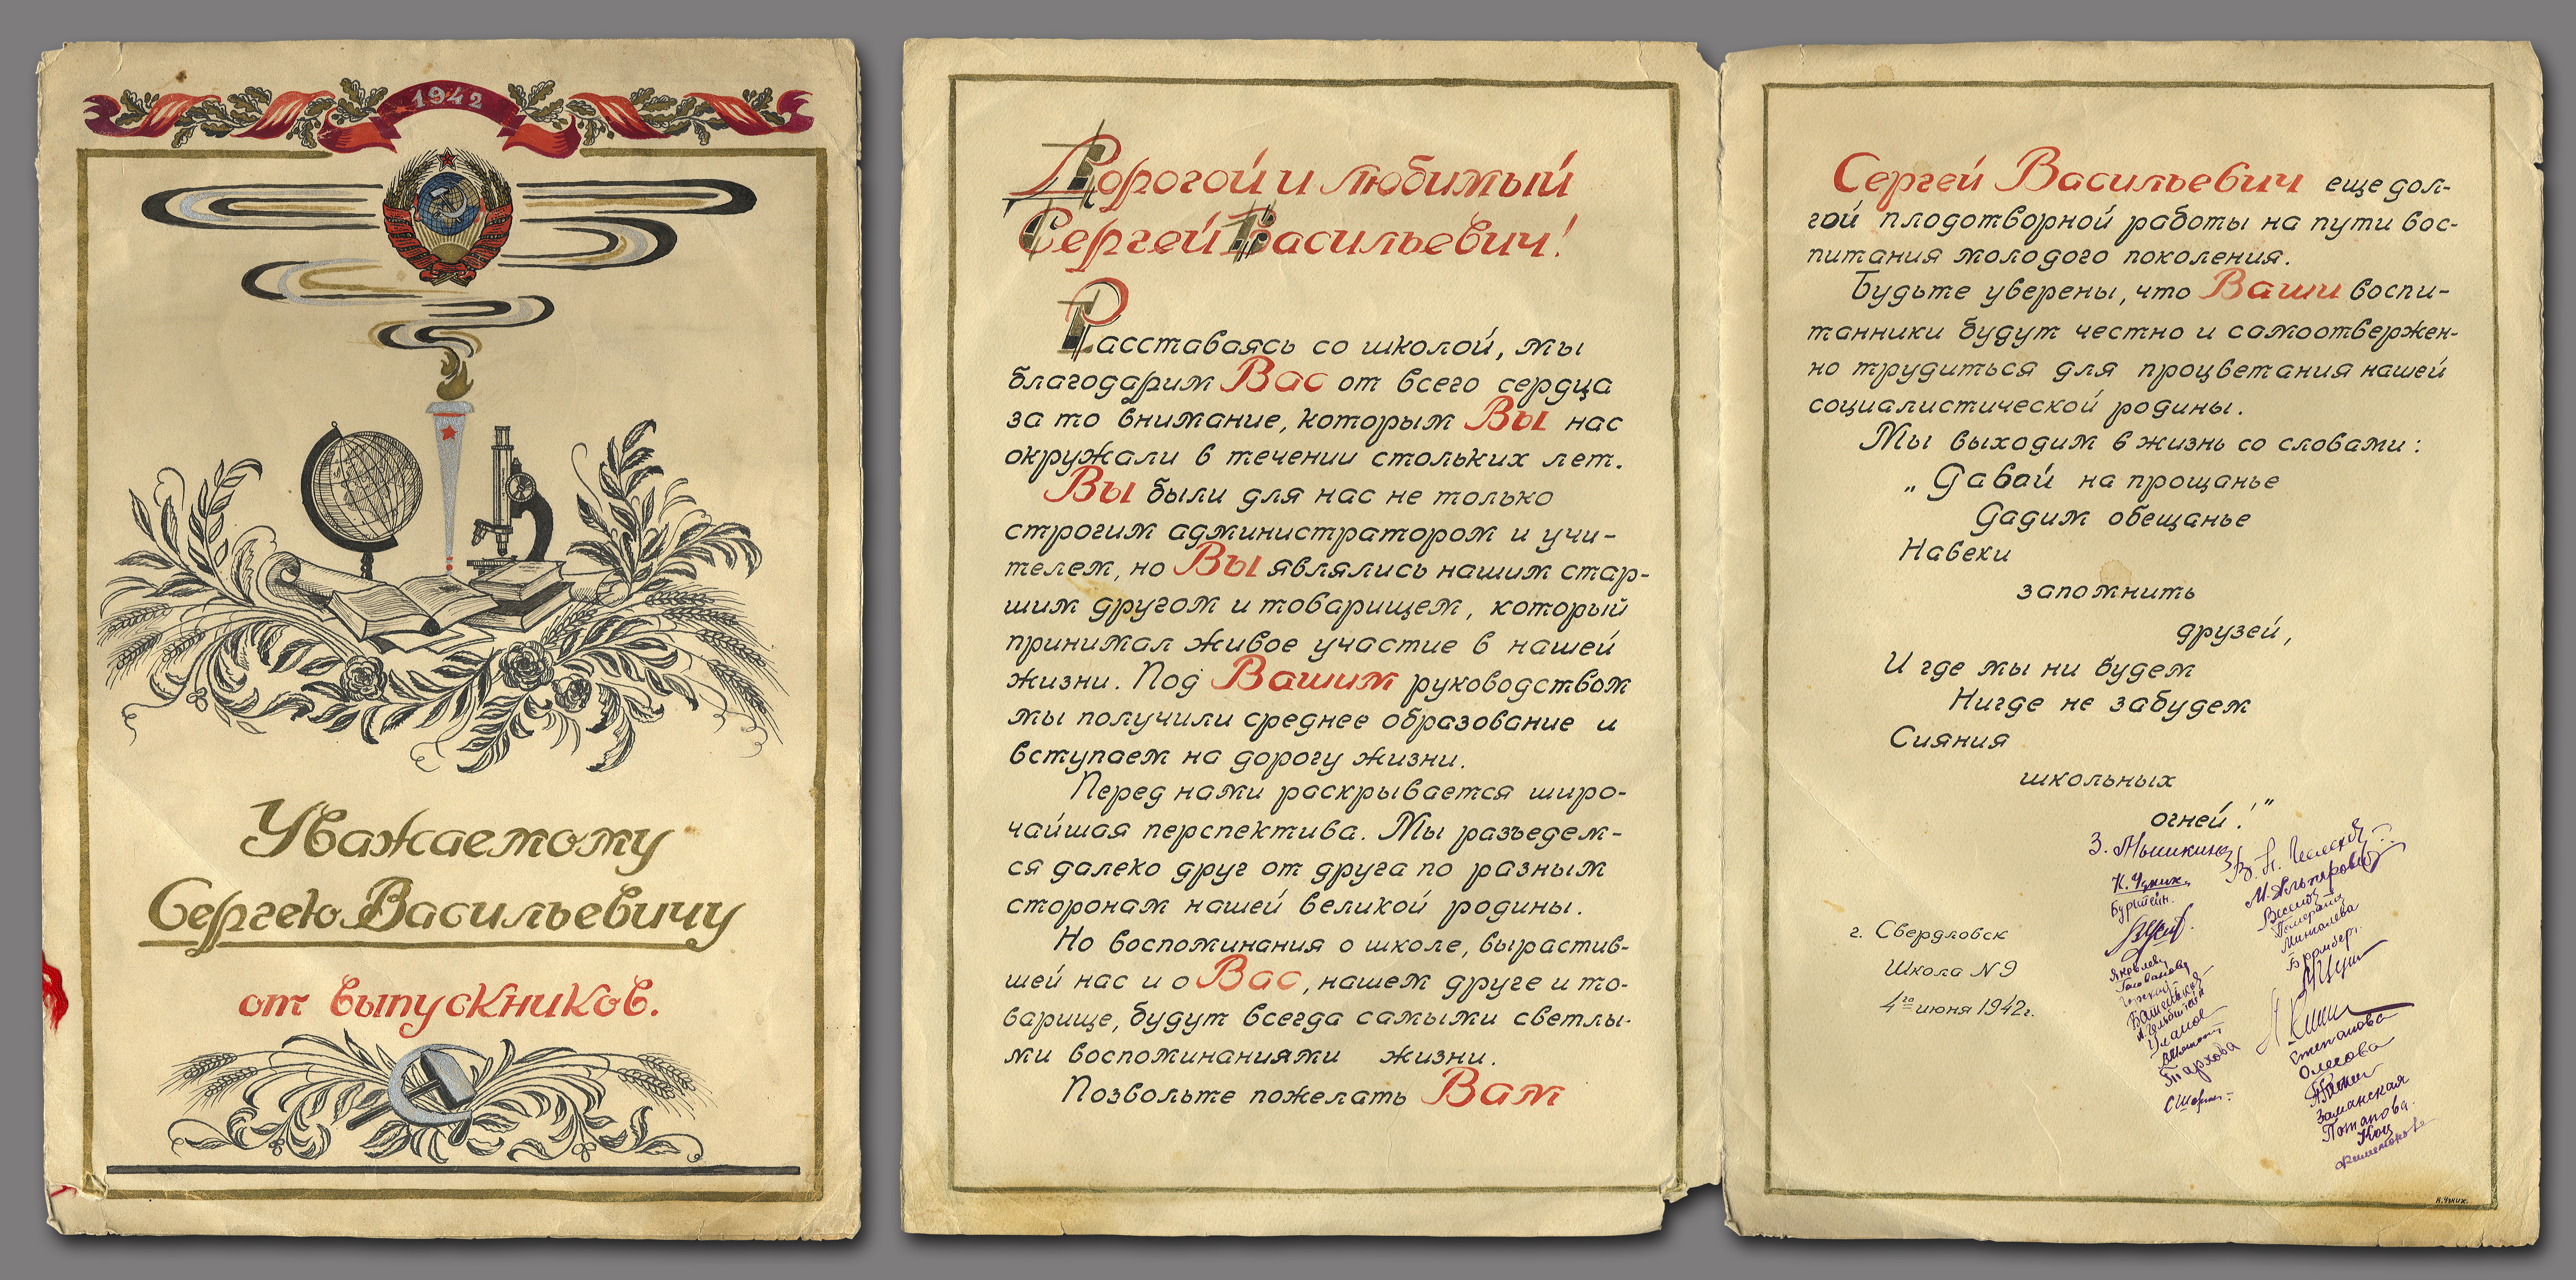 1942
Уважаемому
Сергею Васильевичу
от выпускников.
Дорогой и любимый
Сергей Васильевич!
Расставаясь со школой, мы
благодарим Вас от всего сердца
за то внимание, которым Вы нас
окружали в течении стольких лет.
Вы были для нас не только
строгим администратором и учи-
телем, но Вы являлись нашим стар-
шим другом и товарищем, который
принимал живое участие в нашей
жизни. Под Вашим руководством
мы получили среднее образование и
вступаем на дорогу жизни.
Перед нами раскрывается широ-
чайшая перспектива. Мы разъедем-
ся далеко друг от друга по разным
сторонам нашей великой родины.
Но воспоминания о школе, вырастив-
шей нас и о Вас, нашем друге и то-
варище, будут всегда самыми светлы-
ми воспоминаниями жизни.
Позвольте пожелать Вам
Сергей Васильевич еще дол-
гой плодотворной работы на пути вос-
питания молодого поколения.
Будьте уверены, что Ваши воспи-
танники будут честно и самоотвержен-
но трудиться для процветания нашей
социалистической родины.
Мы выходим в жизнь со словами:
„Давай на прощанье
Дадим обещанье
Навеки
запомнить
друзей,
И где мы ни будем
Нигде не забудем
Сияния
школьных
огней!"
З. Мышкина
К. Чукин.
Бурштейн.
Яковлева
Тархова
Бромберг.
Степанова
Олесова
Заманская
Потапова.
Коц
г. Свердловск
Школа N 9
4го июня 1942г.
К. Чукин.